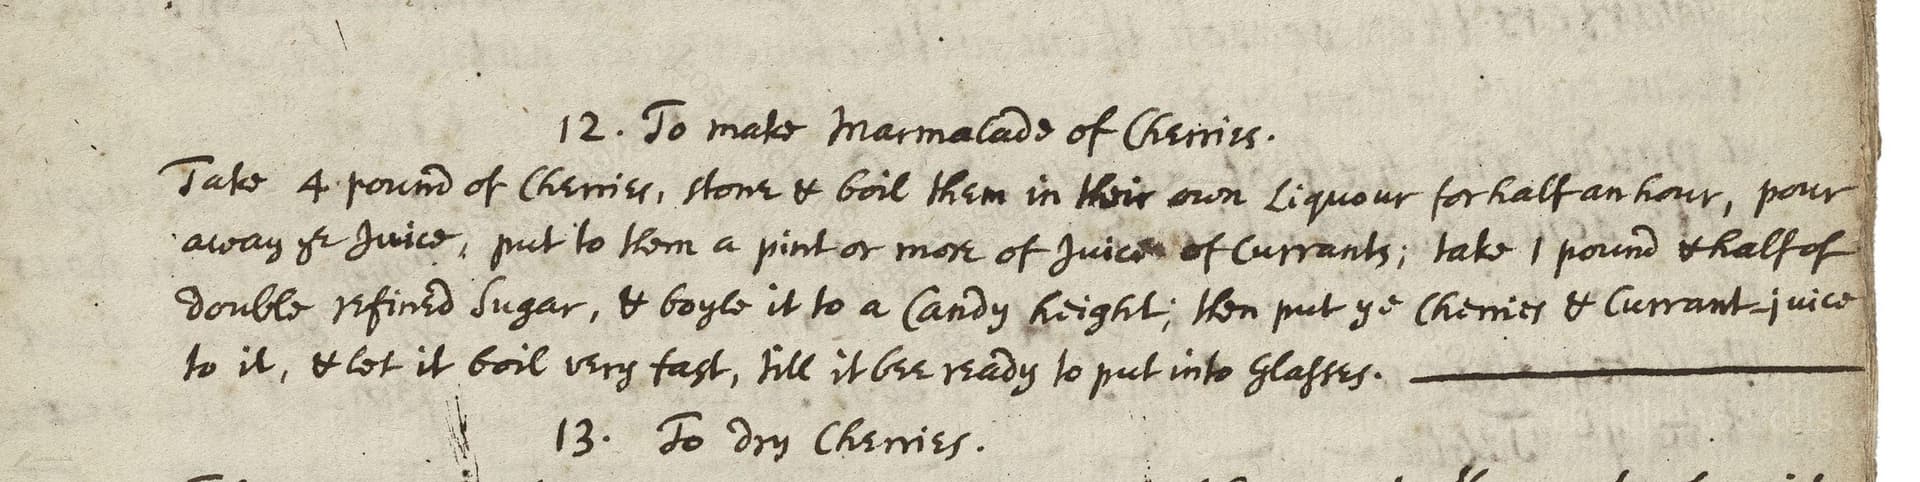 12. To make Marmalade of Cherries.
Take 4 pound of Cherries, stone & boil them in their own Liquour for half an hour, pour
away ye Juice, put to them a pint or more of Juice of Currants; take 1 pound & half of
double refined Sugar, & boyle it to a Candy height; then put ye Cherries & Currant-juice
to it, & let it boil very fast, till it bee ready to put into Glasses.
13. To dry Cherries.